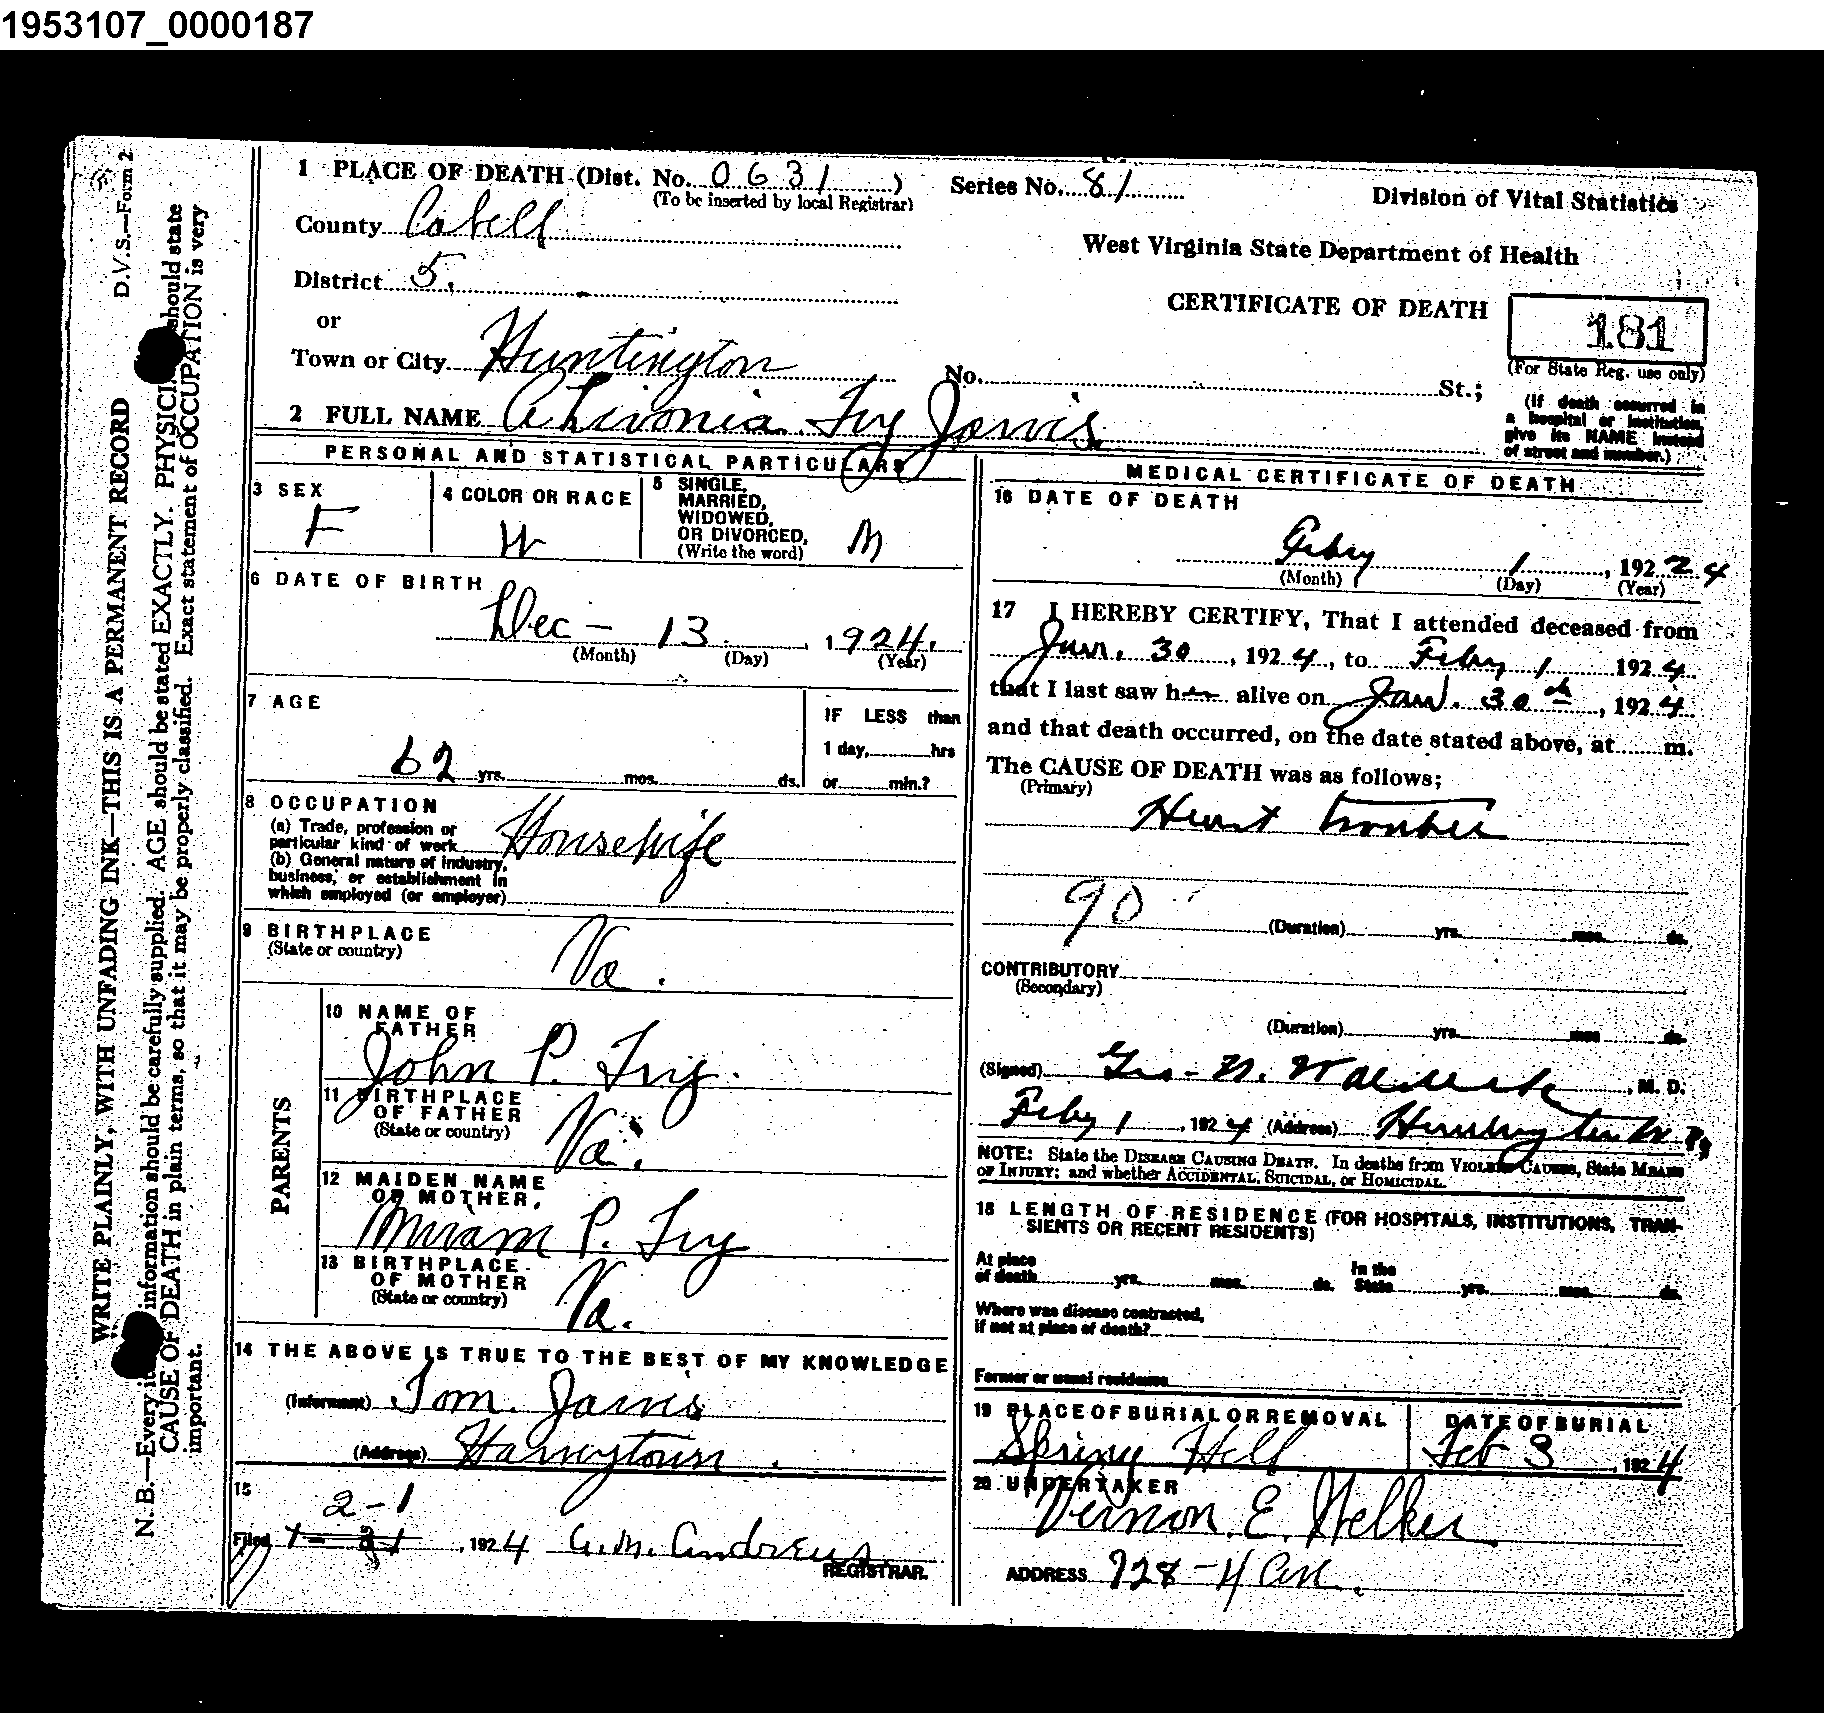 1953107_0000187
D.V.S.—Form 2
WRITE PLAINLY, WITH UNFADING INK—THIS IS A PERMANENT RECORD
N. B.—Every information should be carefully supplied. AGE should be stated EXACTLY. PHYSICI should state
CAUSE OF DEATH in plain terms, so that it may be properly classified. Exact statement of OCCUPATION is very
important.
1 PLACE OF DEATH (Dist. No. 0631 )
(To be inserted by local Registrar)
Series No. 81
Division of Vital Statistics
County Cabell
West Virginia State Department of Health
District 5.
CERTIFICATE OF DEATH
181
(For State Reg. use only)
or
Town or City Huntington
No. St.;
(If death occurred in
a hospital or institution,
give its NAME instead
of street and number.)
2 FULL NAME Jarvis
PERSONAL AND STATISTICAL PARTICULARS
3 SEX
F
4 COLOR OR RACE
W
5 SINGLE,
MARRIED,
WIDOWED,
OR DIVORCED,
(Write the word)
M
6 DATE OF BIRTH
Dec - 13 , 1924.
(Month) (Day) (Year)
7 AGE
62 yrs. mos. ds.
IF LESS than
1 day, hrs
or min.?
8 OCCUPATION
(a) Trade, profession or
particular kind of work Housewife
(b) General nature of industry,
business, or establishment in
which employed (or employer)
9 BIRTHPLACE
(State or country)
Va.
PARENTS
10 NAME OF
FATHER
John P.
11 BIRTHPLACE
OF FATHER
(State or country)
Va.
12 MAIDEN NAME
OF MOTHER.
P.
13 BIRTHPLACE
OF MOTHER
(State or country)
Va.
14 THE ABOVE IS TRUE TO THE BEST OF MY KNOWLEDGE
(Informant) Tom. Jarvis
(Address) Harveytown.
15
2-1
Filed 1-31, 1924 A. M. Andrews
REGISTRAR.
MEDICAL CERTIFICATE OF DEATH
16 DATE OF DEATH
Feby 1, 1924
(Month) (Day) (Year)
17 I HEREBY CERTIFY, That I attended deceased from
Jan. 30, 1924, to Feby 1 1924
that I last saw h alive on Jan. 30th, 1924
and that death occurred, on the date stated above, at m.
The CAUSE OF DEATH was as follows;
(Primary)
Heart trouble
90
(Duration) yrs. mos. ds.
CONTRIBUTORY
(Secondary)
(Duration) yrs. mos. ds.
(Signed) Geo. N. , M. D.
Feby 1, 1924 (Address) Huntington W. Va
NOTE: State the DISEASE CAUSING DEATH. In deaths from VIOLENT CAUSES, State MEANS
OF INJURY; and whether ACCIDENTAL, SUICIDAL, or HOMICIDAL.
18 LENGTH OF RESIDENCE (FOR HOSPITALS, INSTITUTIONS, TRAN-
SIENTS OR RECENT RESIDENTS)
At place
of death yrs. mos. ds.
In the
State yrs. mos. ds.
Where was disease contracted,
if not at place of death?
Former or usual residence
19 PLACE OF BURIAL OR REMOVAL
Spring Hill
DATE OF BURIAL
Feb 3, 1924
20 UNDERTAKER
Vernon. E.
ADDRESS 928-4 Ave.